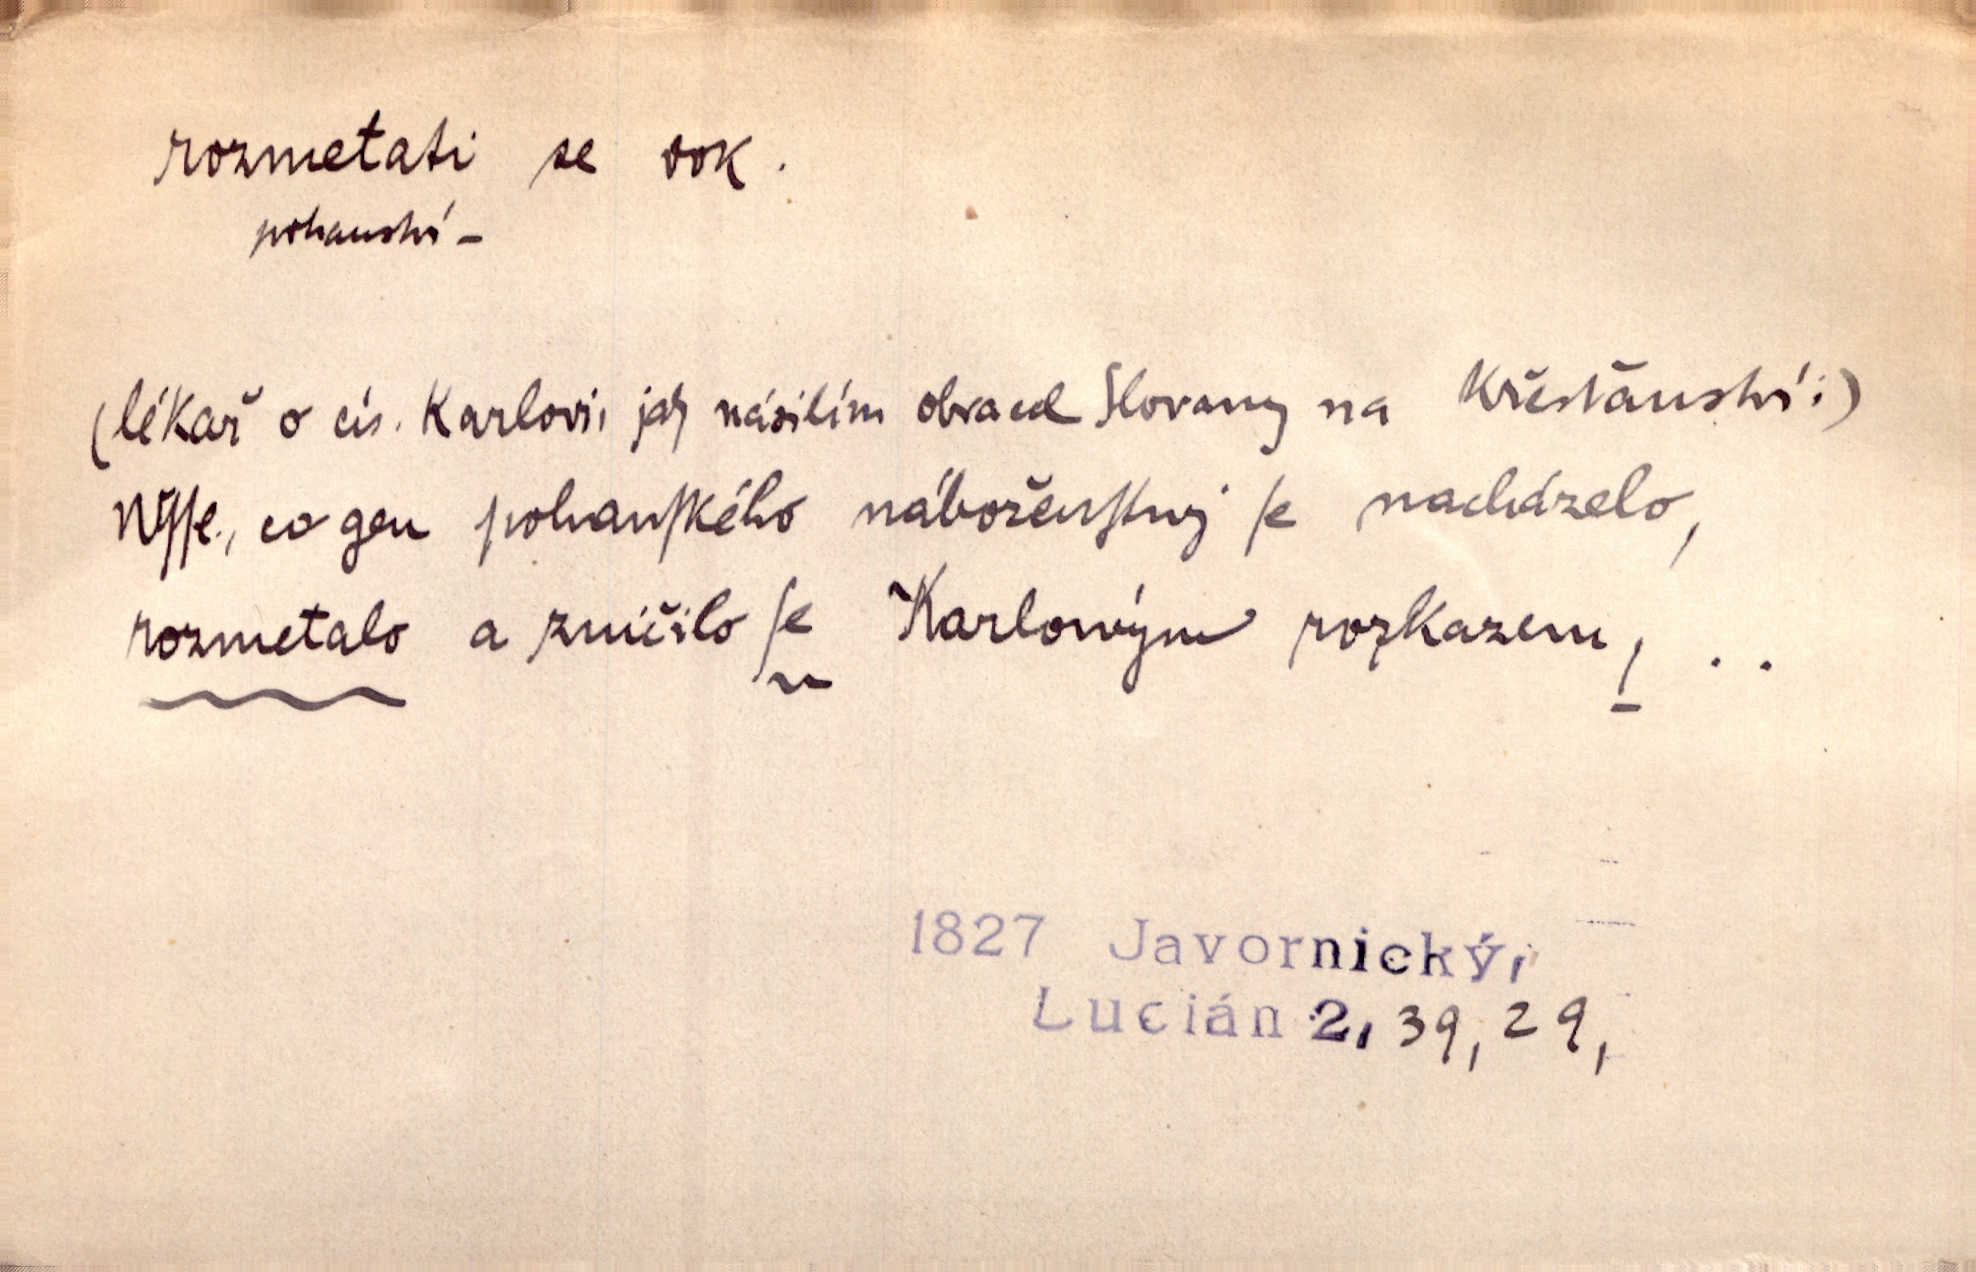 rozmetati se dok.
pohanství –
(lékař o cís. Karlovi, jež násilím obracel Slovany na křesťanství:)
Wſſe, co gen pohanſkého náboženſtwj ſe nacházelo,
rozmetalo a zničilo ſe Karlowým rozkazem, . .
1827 Javornický,
Lucián 2, 39, 29,